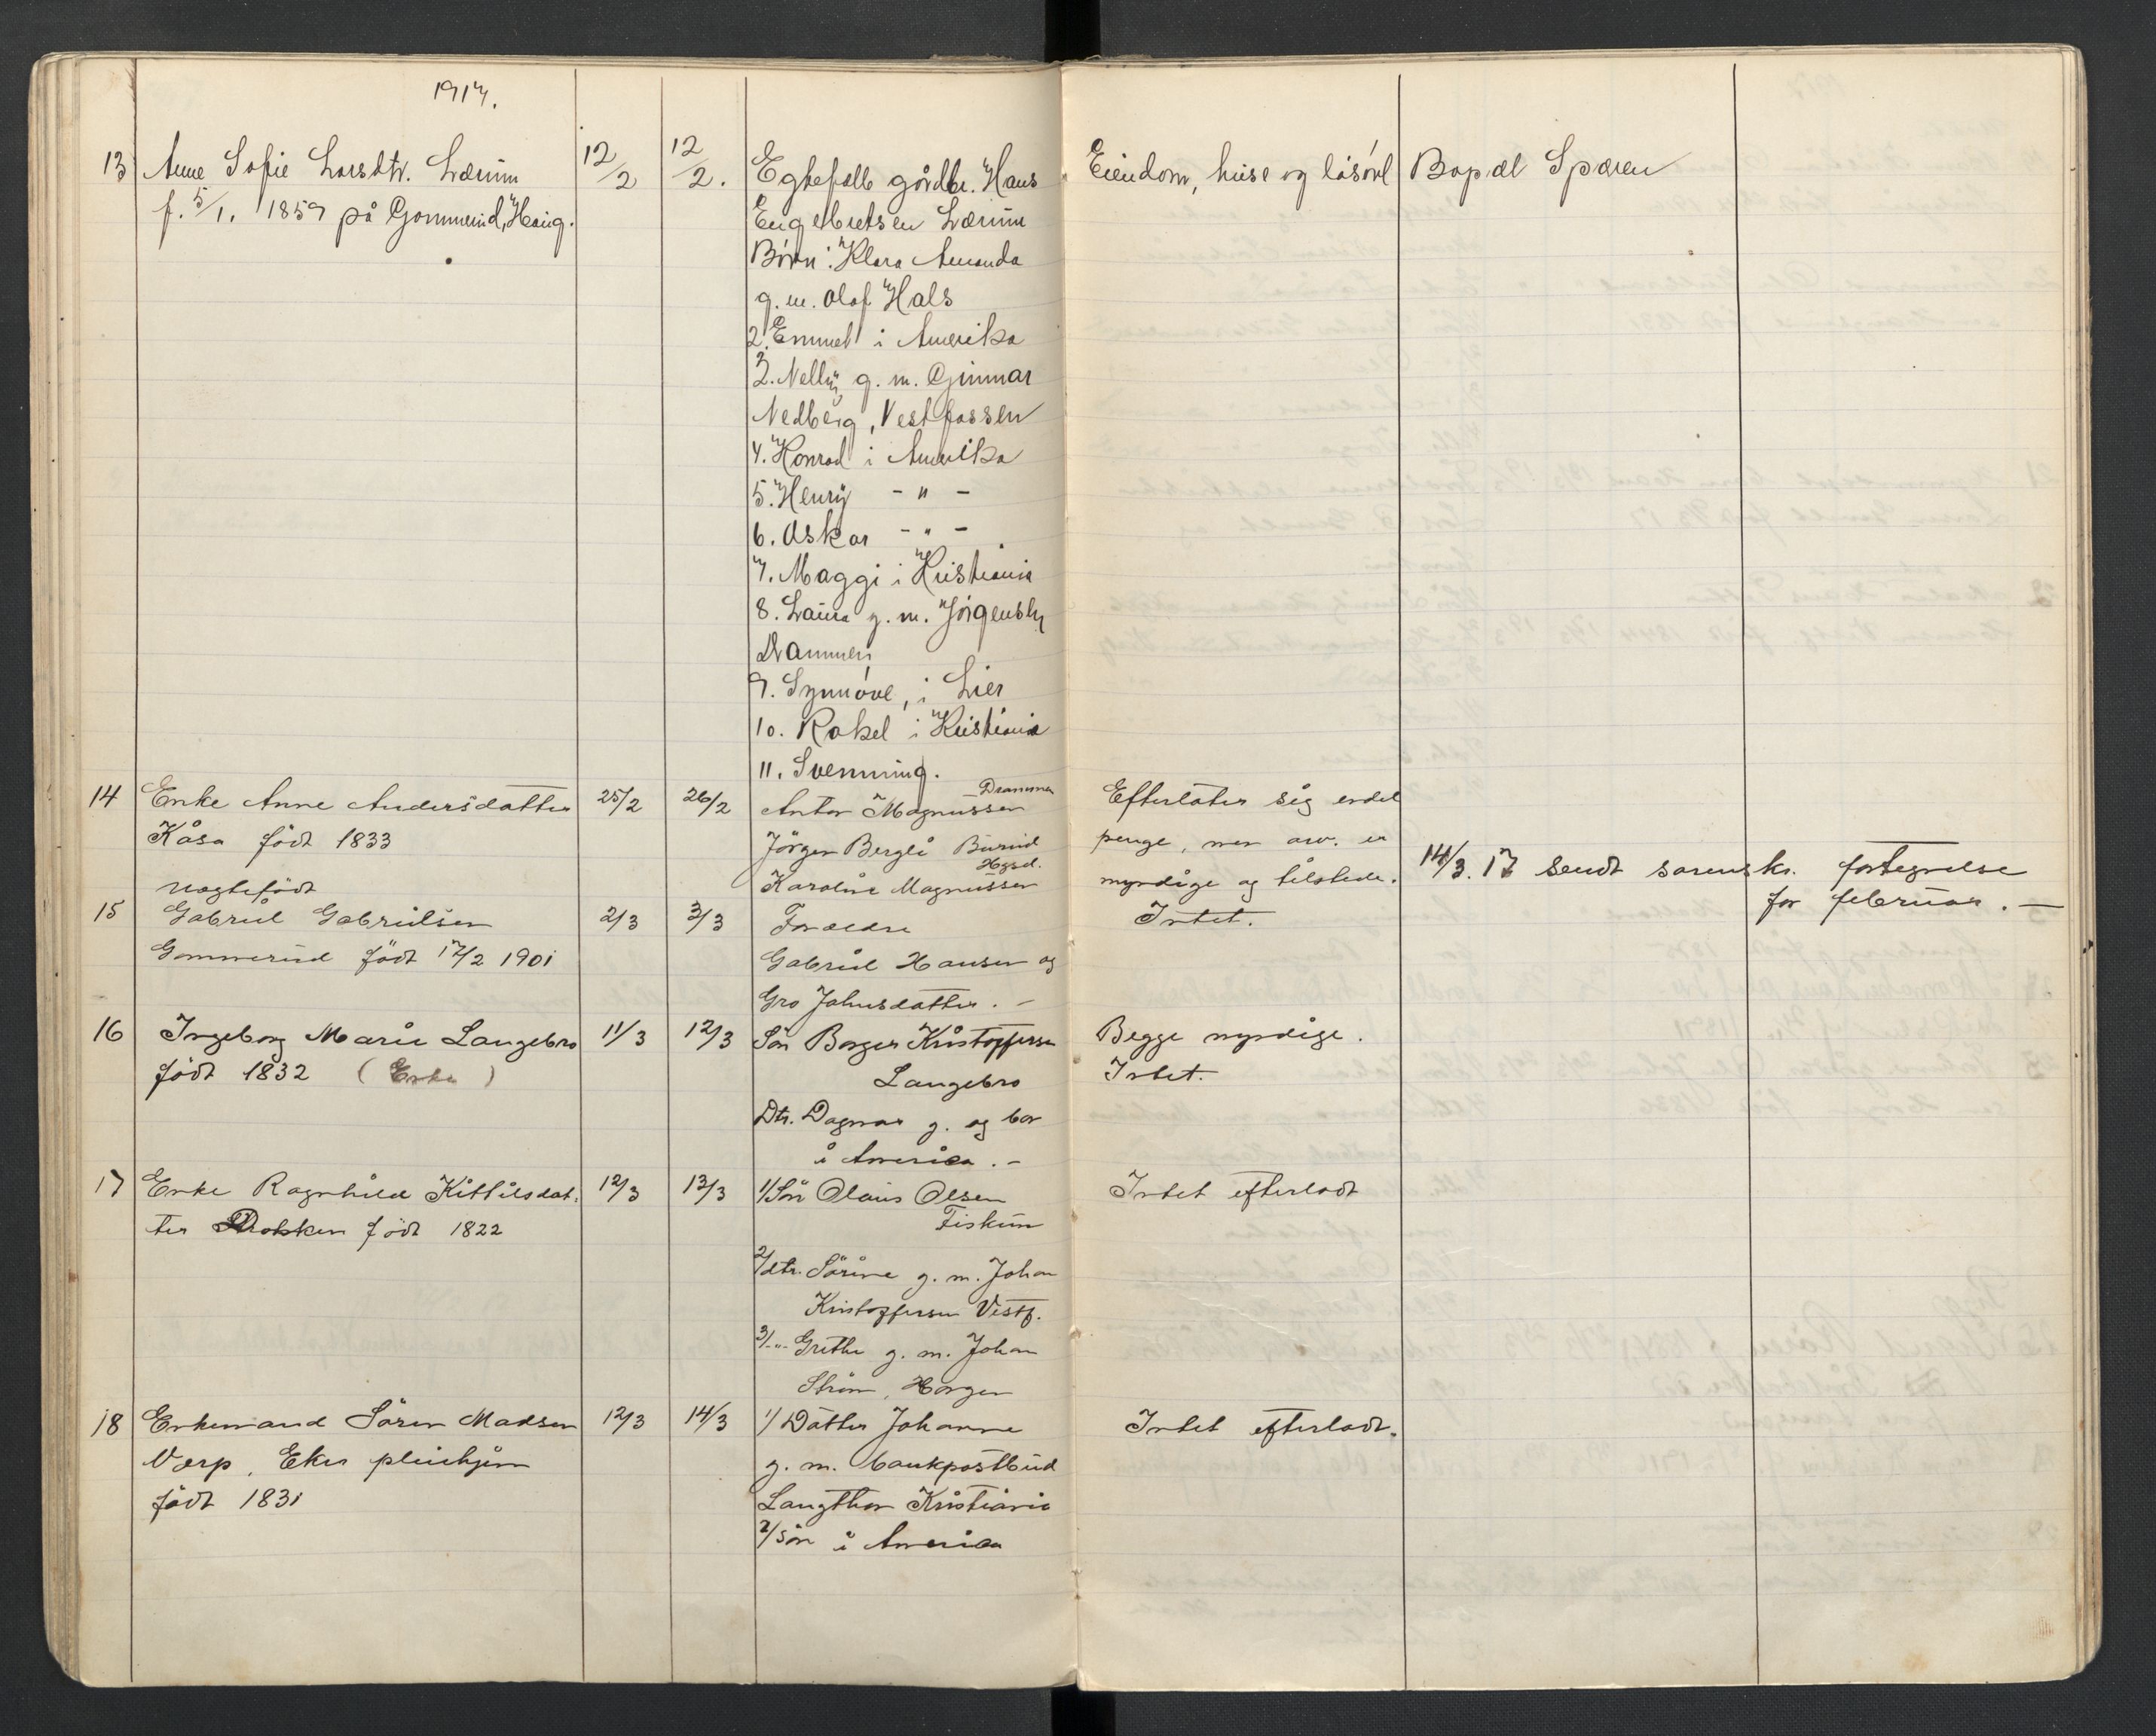 1917.
13 Anne Sofie Larsdtr. Lærum 12/2 12/2. Egtefælle gårdbr. Hans Eiendom, huse og løsøre Bopæl Spæren
f. 5/1. 1859 på Gommerud, Haug. Engelbretsen Lærum
Børn: Klara Amanda
g. m. Olaf Hals
2. Emmel i Amerika
3. Nelly g. m. Gunnar
Nedberg, Vestfossen
4. Konrad i Amerika
5. Henry - " -
6. Oskar - " -
7. Maggi i Kristiania
8. Laura g. m. Jörgensen
Drammen
9. Synnöve, i Lier
10. Rakel i Kristiania
11. Svenning.
14 Enke Anne Andersdatter 25/2 26/2 Anton Magnussen Drammen Efterlater sig endel
Kåsa födt 1833 Jörgen Bergli Burud penge, men arv. er
Hgsd.
Karoline Magnussen myndige og tilstede. 14/3. 17 Sendt sorensk. fortegnelse
for februar. —
Uægtefödt
15 Gabriel Gabrielsen 2/3 3/3 Forældre Intet.
Gommerud födt 17/2 1901 Gabriel Hansen og
Gro Johnsdatter. -
16 Ingeborg Marie Langebro 11/3 12/3 Sön Borger Kristoffersen Begge myndige.
födt 1832 (Enke) Langebro Intet.
Dtr. Dagmar g. og bor
i America. -
17 Enke Ragnhild Kittilsdat- 12/3 13/3 1/ Sön Olaus Olsen Intet efterladt
ter födt 1822 Fiskum
2/ dtr. Sörine g. m. Johan
Kristoffersen Vestf.
3/ -"- Grethe g. m. Johan
Ström, Horgen
18 Enkemand Sören Madsen 12/3 14/3 1/ Datter Johanne Intet efterladt.
Værp, Eker pleiehjem g. m. bankpostbud
födt 1831 Langthon Kristiania
2/ Sön i America